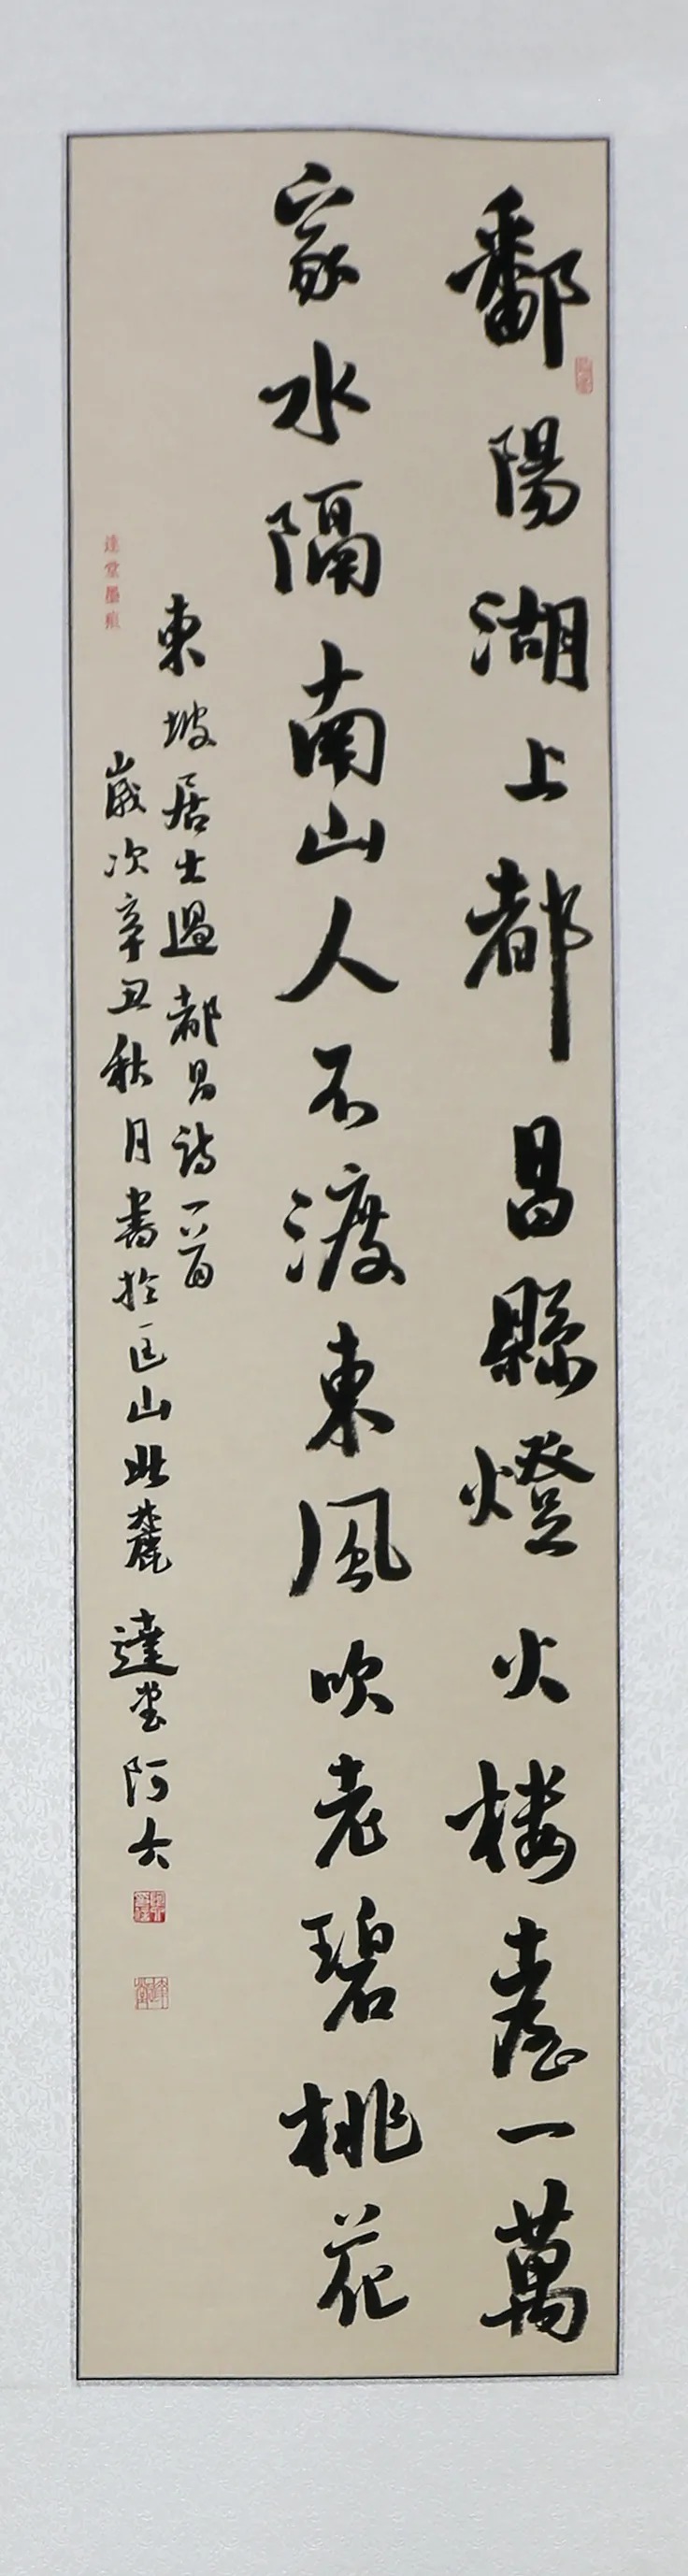 鄱陽湖上都昌縣燈火樓臺一萬
家水隔南山人不渡東風吹老碧桃花
東坡居士過都昌詩一首
歲次辛丑秋月書於匡山北麓 達堂阿大
達堂墨痕